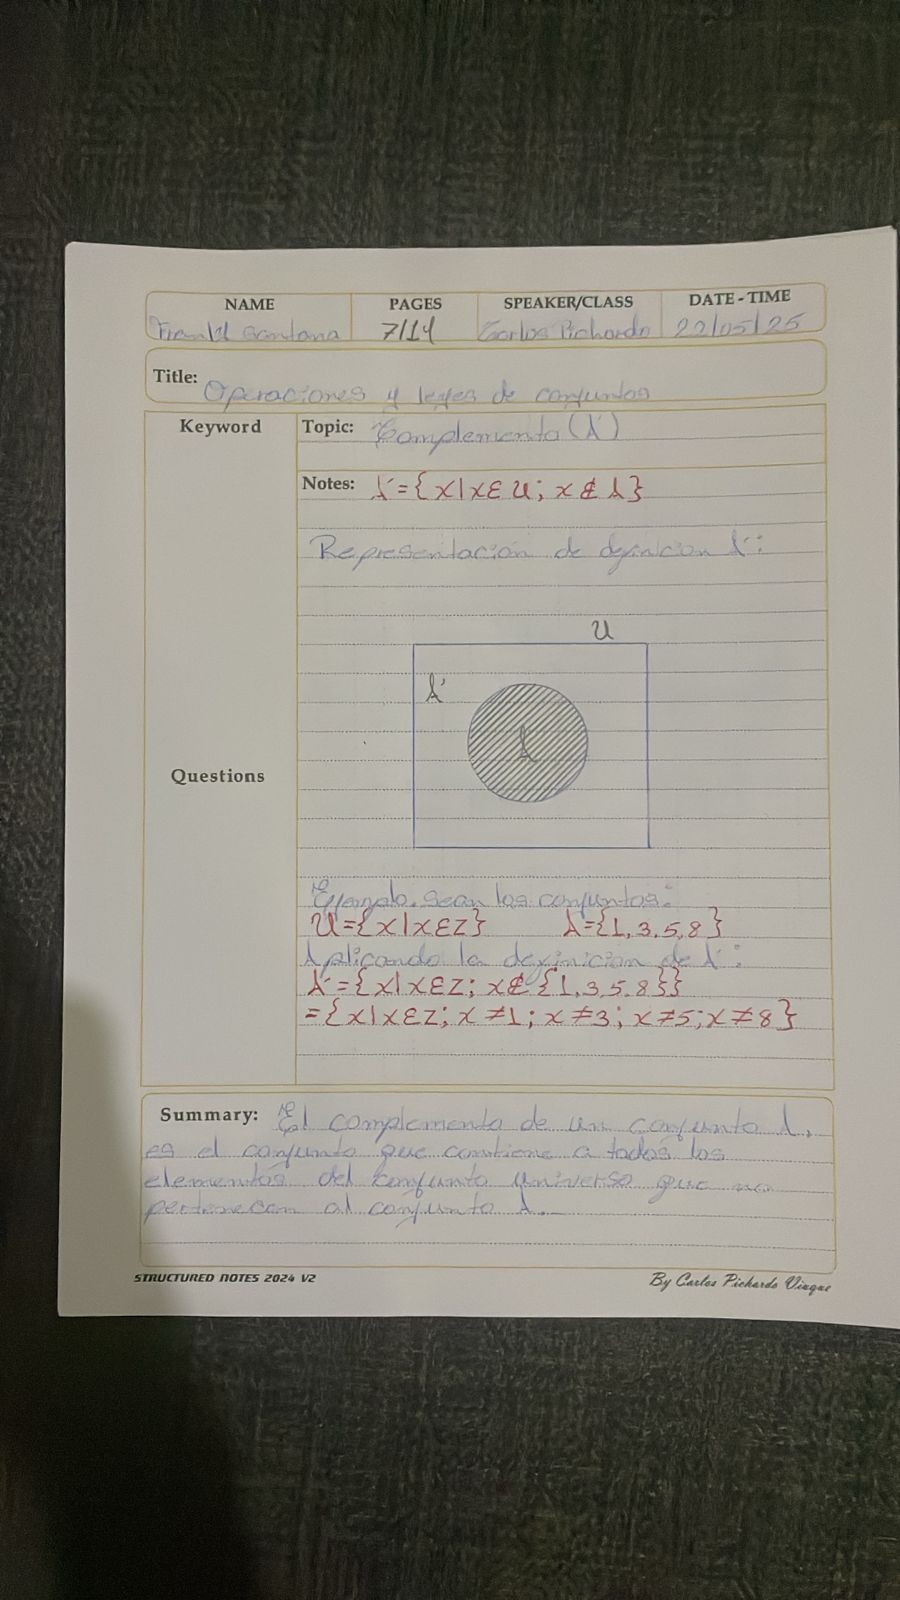 NAME PAGES SPEAKER/CLASS DATE - TIME
Santana 7/14 Carlos Pichardo 22/05/25
Title: Operaciones y leyes de conjuntos
Keyword Topic: Complemento (A')
Notes: A'={x|x∈U; x∉A}
Representación de definicion A':
U
A'
A
Questions
Ejemplo. sean los conjuntos:
U={x|x∈Z} A={1,3,5,8}
Aplicando la definicion de A':
A'={x|x∈Z; x∉{1,3,5,8}}
={x|x∈Z; x≠1; x≠3; x≠5; x≠8}
Summary: El complemento de un conjunto A,
es el conjunto que contiene a todos los
elementos del conjunto universo que no
pertenecen al conjunto A.
STRUCTURED NOTES 2024 V2 By Carlos Pichardo Viuque